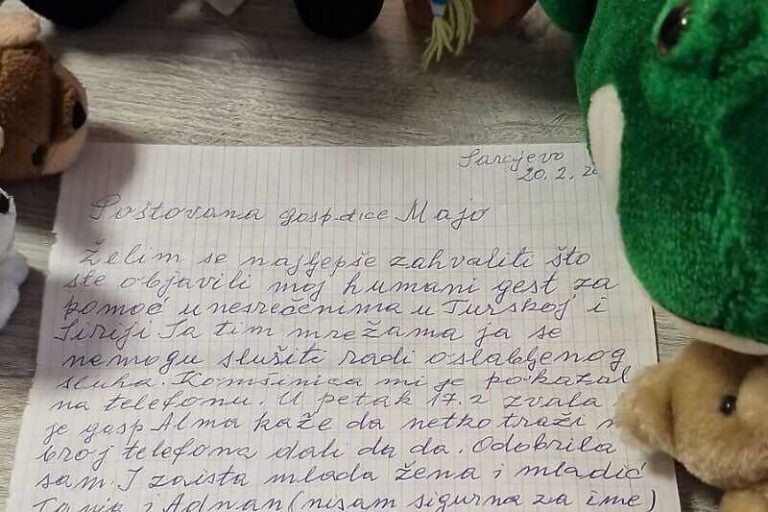 Sarajevo
20.2.
Poštovana gospdice Majo
Želim se najljepše zahvaliti što
ste objavili moj humani gest za
pomoć unesrečenima u Turskoj i
Siriji Ja tim mrežama ja se
nemogu slušiti radi oslabljenog
sluha. Komšinica mi je pokazal
na telefonu. U petak 17.2 zvala
je gosp Alma kaže da netko traži
broj telefona dali da da. Odobrila
sam. I zaista mlada žena i mladić
i Adnan (nisam sigurna za ime)